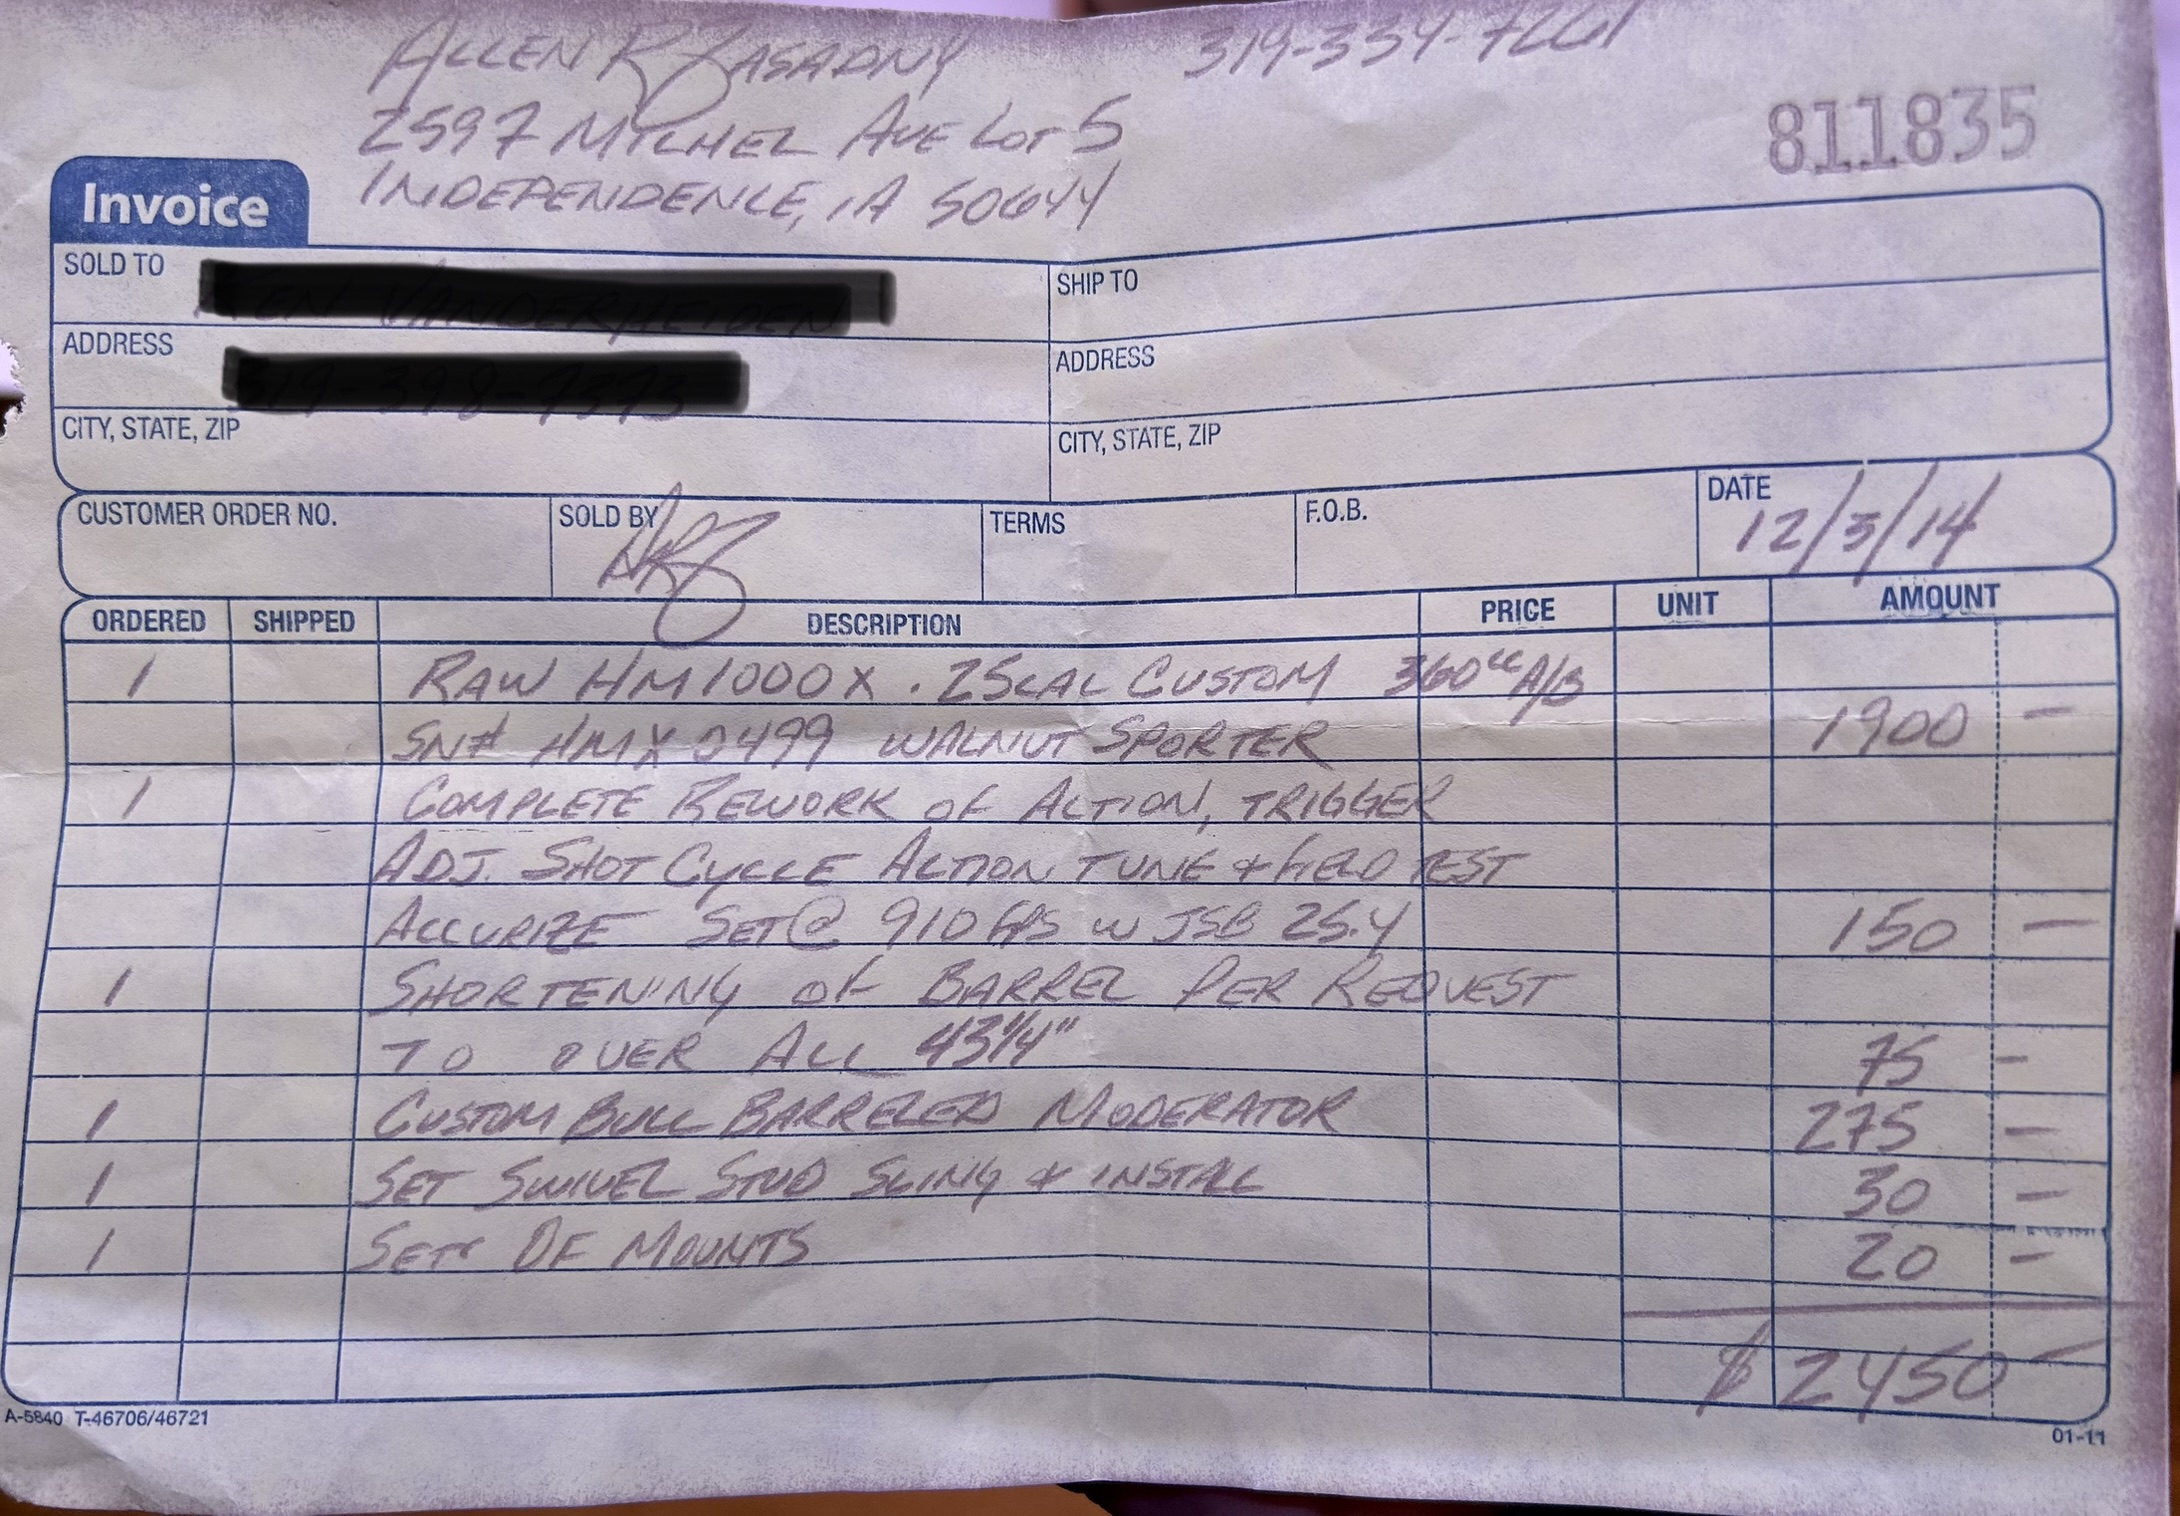 ALLEN R ZASADNY 319-334-7261
2597 MITCHEL AVE LOT 5
INDEPENDENCE, IA 50644
811835
Invoice
SOLD TO
SHIP TO
ADDRESS
ADDRESS
CITY, STATE, ZIP
CITY, STATE, ZIP
CUSTOMER ORDER NO. SOLD BY ARZ TERMS F.O.B. DATE 12/3/14
ORDERED SHIPPED DESCRIPTION PRICE UNIT AMOUNT
1 RAW HM1000X .25CAL CUSTOM 360cc A/B
SN# HMX0499 WALNUT SPORTER 1900 —
1 COMPLETE REWORK OF ACTION, TRIGGER
ADJ. SHOT CYCLE ACTION TUNE & FIELD TEST
ACCURIZE SET @ 910 FPS W JSB 25.4 150 —
1 SHORTENING OF BARREL PER REQUEST
TO OVER ALL 43 1/4" 75 —
1 CUSTOM BULL BARRELED MODERATOR 275 —
1 SET SWIVEL STUD SLING & INSTALL 30 —
1 SET OF MOUNTS 20 —
$ 2450 —
A-5840 T-46706/46721
01-11